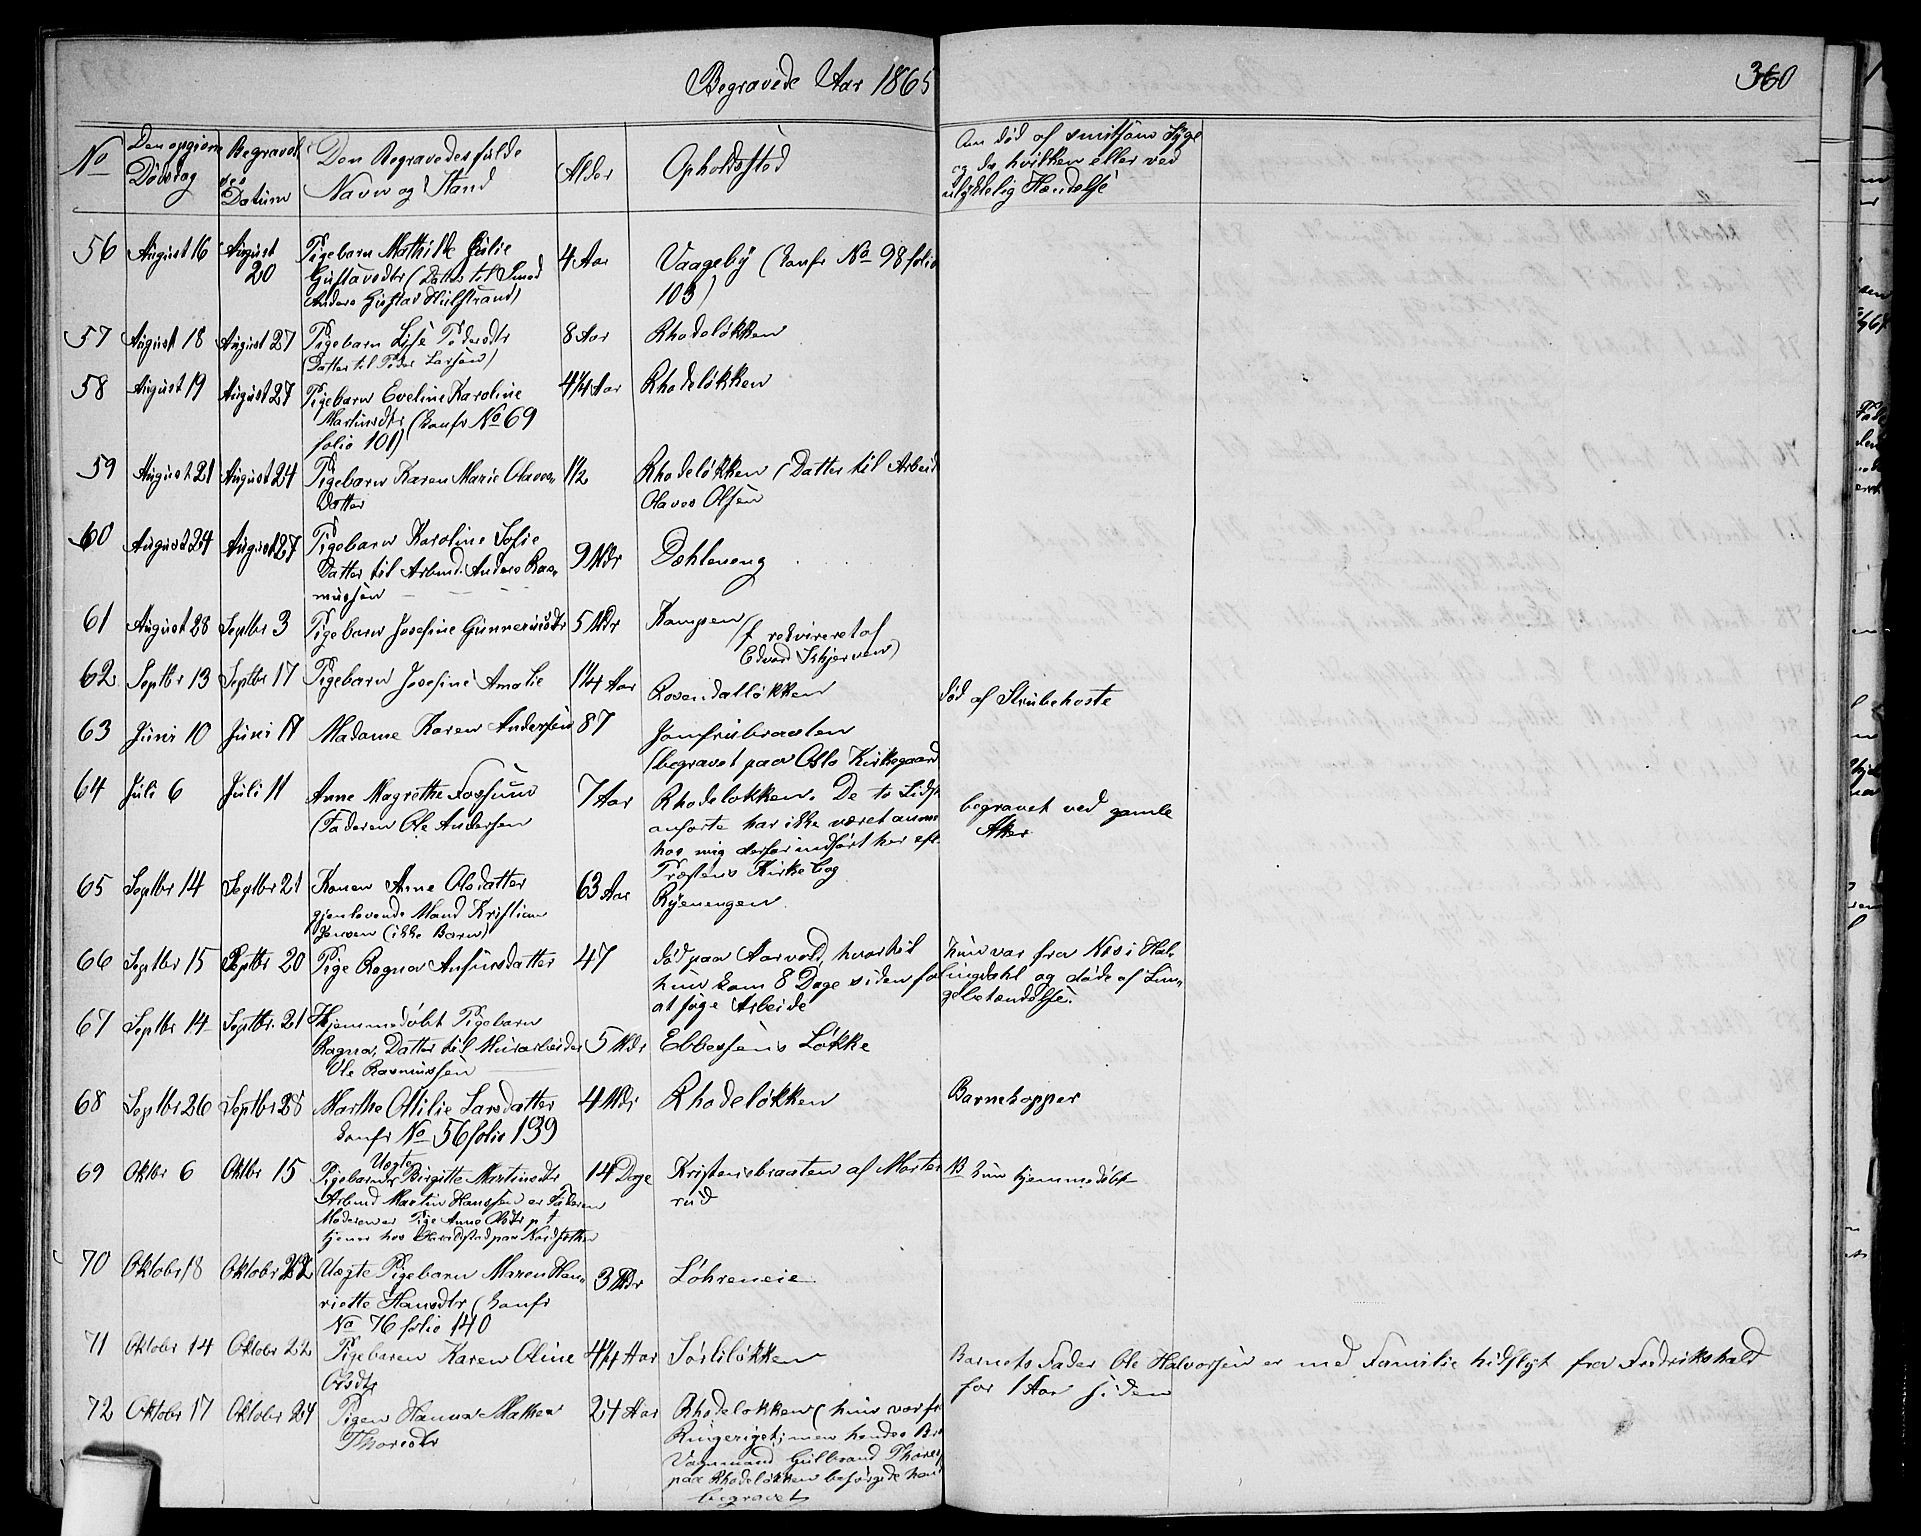 Begravede Aar 1865
360
No
Den opgivne Dødsdag
Begravelses Datum
Den Begravedes fulde Navn og Stand
Alder
Opholdssted
Om død af smitsom Syge
og da hvilken eller ved
ulykkelig Hændelse
56 August 16 August 20 Pigebarn Mathilde Julie 4 Aar Vaagebÿ (Confr No 98 folio
Gustavsdtr (Datter til Smed 103)
Anders Gustav Hulstrand)
57 August 18 August 27 Pigebarn Lise Pedersdtr 8 Aar Rhodeløkken
(Datter til Peder Larsen)
58 August 19 August 27 Pigebarn Eveline Karoline 4 1/4 Aar Rhodeløkken
Martinsdtr (Confr No 69
folio 101)
59 August 21 August 24 Pigebarn Karen Marie Olavs- 1 1/2 Rhodeløkken (Datter til Arbeid
Datter Olaves Olsen
60 August 24 August 27 Pigebarn Karoline Sofie 9 Mdr Dæhleneng
Datter til Arbmd. Anders Ras-
mussen
61 August 28 Septbr 3 Pigebarn Josefine Gunneriusdtr 5 Mdr Kampen
(rekvireret af
Edvard Skjerven)
62 Septbr 13 Septbr 17 Pigebarn Josefine Amalie 1 1/4 Aar Rosendalløkken død af Strubehoste
63 Juni 10 Juni 17 Madame Karen Andersen 87 Jomfrubraaten
(begravet paa Oslo Kirkegaard
64 Juli 6 Juli 11 Anne Magrethe Fossum 7 Aar Rhodeløkken. De to Sidst begravet ved gamle
(Faderen Ole Andersen anførte har ikke været anm Aker
hos mig derfor indført her eft.
Præstens Kirkebog
65 Septbr 14 Septbr 21 Konen Anne Olsdatter 63 Aar Ryenengen
gjenlevende Mand Kristian
Jensen (ikke Børn)
66 Septbr 15 Septbr 20 Pige Ragna Anfinsdatter 47 død paa Aarvold, hvortil hun var fra Næs i Hal-
hun kom 8 Dage siden for lingdahl og døde af Lun-
at søge Arbeide gebetændelse.
67 Septbr 14 Septbr. 21 Hjemmedøbt Pigebarn
Ragna, Datter til Murarbeider 5 Mdr Ebbesens Løkke
Ole Rasmussen
68 Septbr 26 Septbr 28 Marthe Otilie Larsdatter 4 Mdr Rhodeløkken Barnekopper
Confr No 56 folio 139
69 Oktbr 6 Oktbr 15 Uægte
Pigebarn Birgitte Martinsdtr 14 Dage Kristensbraaten af Morte NB kun hjemmedøbt
Arbmd Martin Hanssen er Faderen rud
Moderen er Pige Anne Olsdtr p t
tjener hos
70 Oktober 18 Oktober 22 Uægte Pigebarn Maren Hen- 3 Mdr Løhreneie
riette Hansdtr (Confr
No 76 folio 140
71 Oktober 14 Oktober 22 Pigebarn Karen Oline 4 1/4 Aar Sørliløkken Barnets Fader Ole Halvorsen er med Familie hidflyt fra Fredrikshald
Olsdtr for 1 Aar siden
72 Oktober 17 Oktober 24 Pigen Hanna Mathea 24 Aar Rhodeløkken (hun var fr
Thoresdtr Ringeriget; men hendes Br
Vognmand Gulbrand Thores
paa Rhodeløkken besørgede hend
begravet